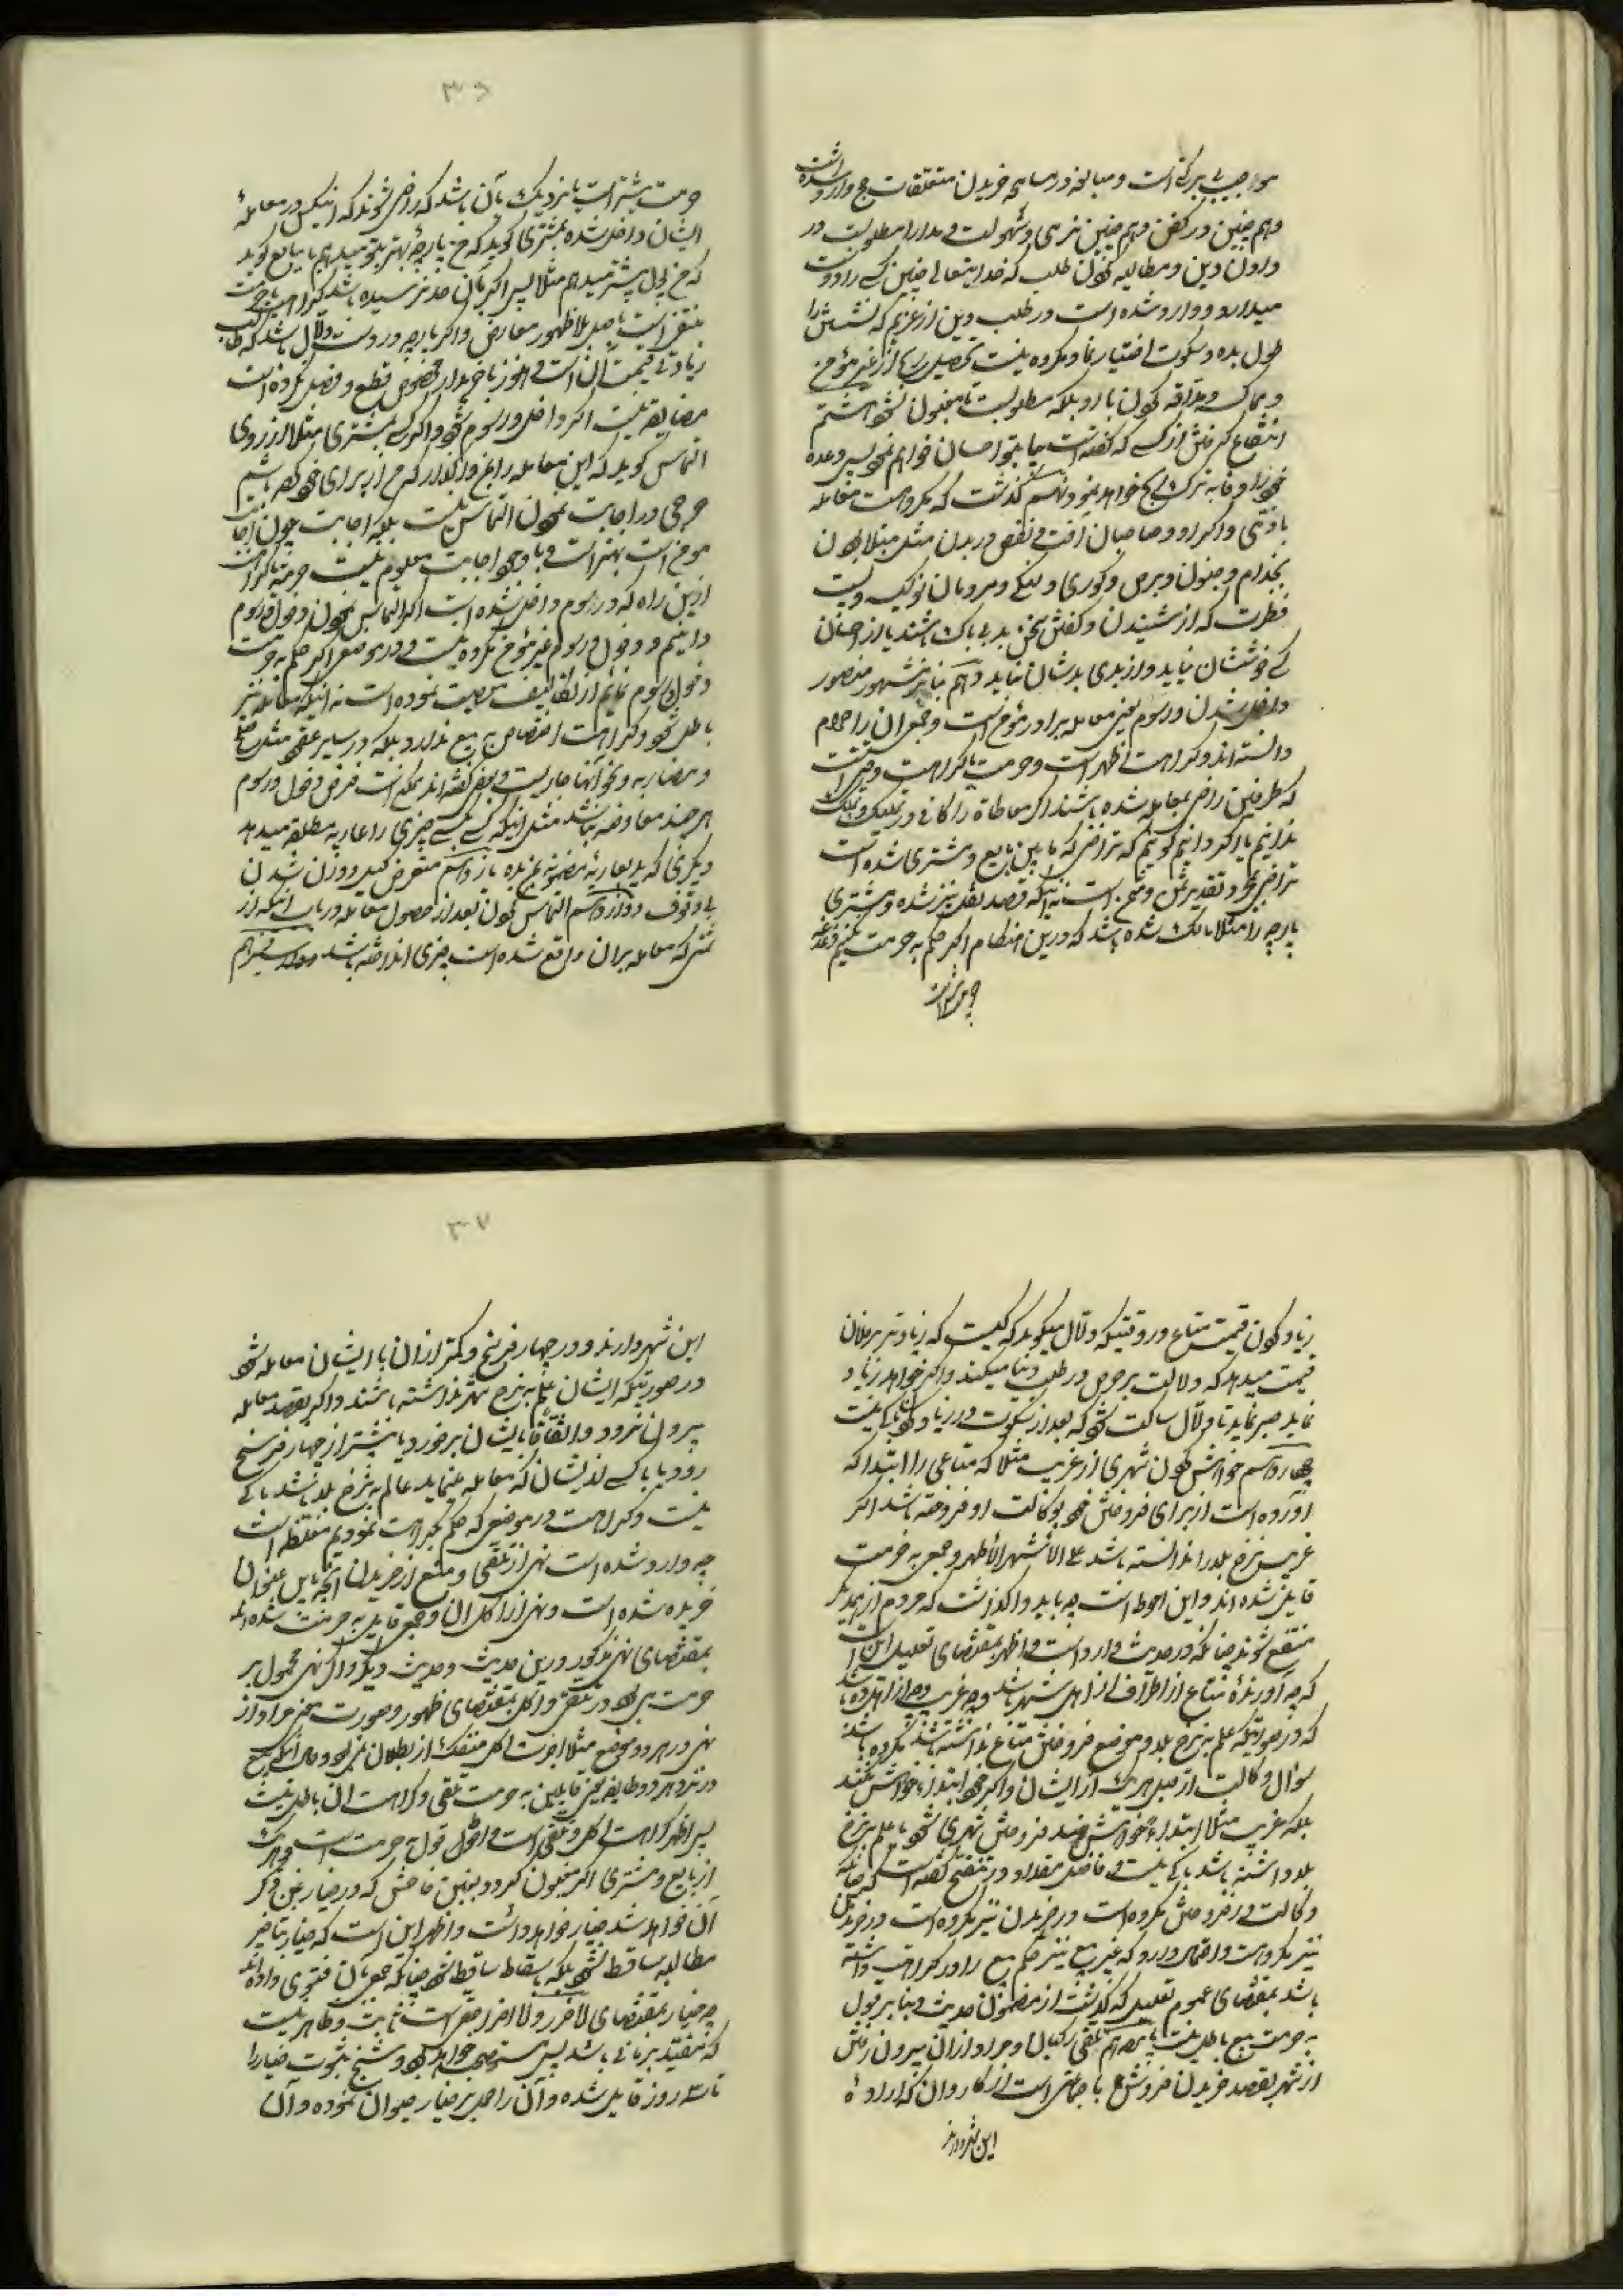 موجب بی برکتی است و مبالغه در مسامحه خریدن متعلقات حج وارد شده است
و هم چنین در کفن و هم چنین نرمی و سهولت و مدارا مطلوبست در
دادن دین و مطالبه نمودن طلب که خدایتعالی چنین کس را دوست
میدارد و وارد شده است در طلب دین از غریم که نشستن را
طول بده و سکوت اختیار نما و مکروه نیست تحصیل از غیر مؤمن
و مماکسه و مداقه نمودن با او بلکه مطلوبست تا مغبون نشود هشتم
انتفاع گرفتن از کسی که گفته است بیا بتو احسان خواهم نمود پس وعده
خود را وفا به ترک خواهد نمود نهم گذشت که مکروهست معامله
با ذمی و اکراد و صاحبان آفت و نقص در بدن مثل مبتلا بودن
بجذام و جنون و برص و کوری و لنگی و مردمان نوکیسه و پست
فطرت که از شنیدن و گفتن سخن بد بی باک باشند یا از احسان
کسی خوششان نیاید و از بدی بدشان نیاید دهم بنابر مشهور منصور
داخل شدن در سوم یعنی معامله برادر مؤمن است و جمعی آن را حرام
دانسته اند و کراهت اظهر است و حرمت یا کراهت وقتی است
که طرفین راضی بمعامله شده باشند اگر معاطاة را کافی در تملیک و تملک
ندانیم یا اگر دانیم گوئیم که تراضی که ما بین بایع و مشتری شده است
تراضی و تقدیر ثمن و مثمن است نه اینکه قصد نقل نیز شده و مشتری
پارچه را مثلا مالک شده باشد که درین هنگام اگر حکم به حرمت نکنیم
چه حرمت
۳۶
حرمت بیشتر است یا نزدیک بآن باشد که راضی شوند که اینکس در معامله
ایشان داخل شده بمشتری گوید که من پارچه بهتر بتو میدهم یا ببایع گوید
که من پول بیشتر میدهم مثلا پس اگر بآن حد نرسیده باشد کراهت یا حرمت
منتفی است باصل بلا ظهور معارض و اگر پارچه در دست دلال باشد که طلب
زیادتی قیمت آن است و هنوز با خریدار مخصوص قطع و فصل نکرده است
مضایقه نیست اگر داخل در سوم شود و اگر کسی بمشتری مثلا از روی
التماس گوید که این معامله را بمن واگذار که من از برای خود کرده باشم
حرجی در اجابت نمودن التماس نیست بلکه اجابت چون اجابت
مؤمن است بهتر است و با وجود اجابت معلوم نیست حرمت یا کراهت
ازین راه که در سوم داخل شده است اگر التماس نمودن دخول در سوم
دانیم و دخول در سوم غیر مؤمن مکروه نیست و در موضعی که حکم به حرمت
دخول در سوم نمائیم از تکلیف معصیت نموده است نه اینکه معامله نیز
باطل شود و کراهت اختصاص به بیع ندارد بلکه در سایر عقود مثل صلح
و مضاربه و نحو آنها جاریست و بعضی گفته اند ممکن است فرض دخول در سوم
هر چند معاوضه نباشد مثل اینکه کسی بکسی چیزی را عاریه مطلقه میدهد
دیگری گوید بعاریه مضمونه بمن بده یازدهم متعرض کیل و وزن شدن
بی وقوف دوازدهم التماس نمودن بعد از حصول معامله در باب اینکه از
ثمنی که معامله بر آن واقع شده است چیزی انداخته باشد سیزدهم
زیاد کردن قیمت متاع در وقتیکه دلال میگوید که کیست که زیادتر بر فلان
قیمت میدهد که دلالت بر حرص در طلب دنیا میکند و اگر خواهد زیاد
نماید صبر نماید تا دلال ساکت شود که بعد از سکوت در زیاد کردن باکی نیست
چهاردهم خواهش کردن شهری از غریب مثلا که متاعی را ابتدا که
آورده است از برای فروختن خود بوکالت او فروخته باشد اگر
غریب نرخ بلد را ندانسته باشد علی الاشهر الاظهر و جمعی به حرمت
قایل شده اند و این احوط است چه باید واگذاشت که مردم از یکدیگر
منتفع شوند چنانکه در حدیث وارد است و اظهر بمقتضای تعلیل این است
که چه آورنده متاع از اطراف از اهل شهر باشد و چه غریب و چه از اهل ده باشد
که در صورتیکه علم به نرخ بلد و موضع فروختن متاع نداشته باشد مکروه باشد
سؤال وکالت از قبل هر یک از ایشان و اگر خود ابتداءً خواهش نکند
بلکه غریب مثلا ابتداءً خواهش کند فروختن شهری شود یا علم به نرخ
بلد داشته باشد باکی نیست و فاضل مقداد در تنقیح گفته است که چنانکه
وکالت در فروختن مکروه است در خریدن نیز مکروه است در خریدن
نیز مکروهست و احتمال دارد که غیر بیع نیز حکم بیع را در کراهت داشته
باشد بمقتضای عموم تعلیل که گذشت از مضمون حدیث و بنا بر قول
به حرمت بیع باطل نیست پانزدهم تلقی رکبان و مراد از آن بیرون رفتن
از شهر بقصد خریدن فروش با جماعتی است از کاروان که اراده
این شهر دارند
۳۷
این شهر دارند و در چهار فرسخ و کمتر از آن با ایشان معامله شود
در صورتیکه ایشان علم به نرخ شهر نداشته باشند و اگر بقصد معامله
بیرون نرود و اتفاقا بایشان برخورد یا بیشتر از چهار فرسخ
رود یا با کسی از ایشان که معامله مینماید عالم به نرخ بلد باشد باکی
نیست و کراهت در موضعی که حکم بکراهت نمودیم مغلظه است
چه وارد شده است نهی از تلقی و منع از خریدن آنچه باین عنوان
خریده شده است و نهی از اکل آن و جمعی قایل به حرمت شده اند
بمقتضای نهی مذکور درین حدیث و حدیث دیگر و اگر نهی محمول بر
حرمت بوده در تلقی و اکل بمقتضای ظهور و صورت سخن مراد از
نهی در هر دو موضع مثلا حرمت اکل منفک از بطلان نمی بود و حال آنکه بیع
در نزد هر دو طایفه یعنی قایلین به حرمت تلقی و کراهت آن باطل نیست
پس اظهر کراهت اکل و تلقی است و احوط قول به حرمت است و هر یک
از بایع و مشتری اگر مغبون گردد بغبن فاحش که در خیار غبن ذکر
آن خواهد شد خیار خواهد داشت و اظهر این است که خیار بتاخیر
مطالبه ساقط نشود بلکه باسقاط ساقط شود چنانکه جمعی بآن فتوی داده اند
چه خیار بمقتضای لا ضرر و لا اضرار حقی است ثابت و ظاهر نیست
که مقید بزمانی باشد پس مستصحب خواهد بود و شیخ ثبوت خیار را
تا سه روز قایل شده و آن را حمل بر خیار حیوان نموده و آن